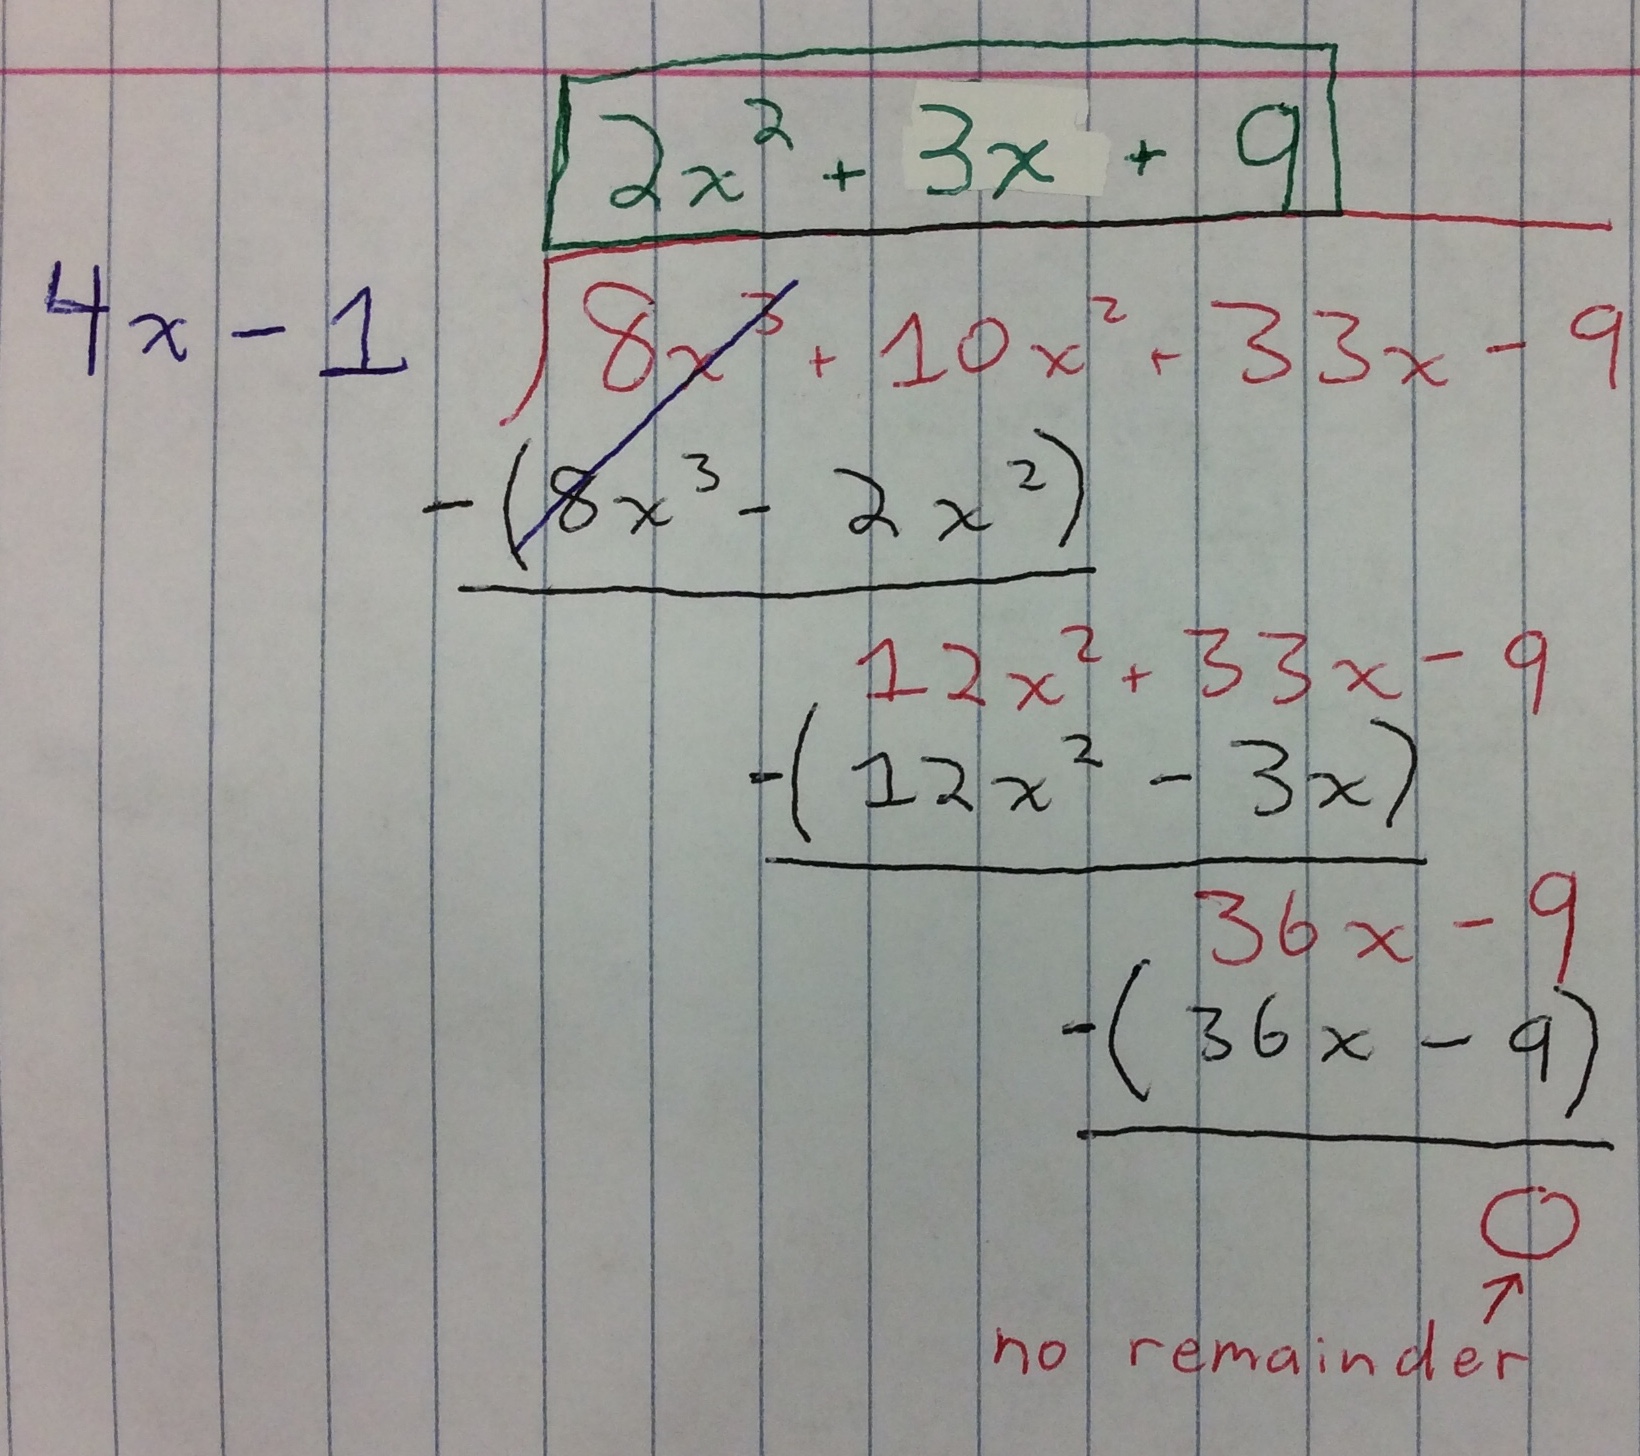 2x² + 3x + 9
4x - 1 8x³ + 10x² + 33x - 9
-(8x³ - 2x²)
12x² + 33x - 9
-(12x² - 3x)
36x - 9
-(36x - 9)
0
↗
no remainder